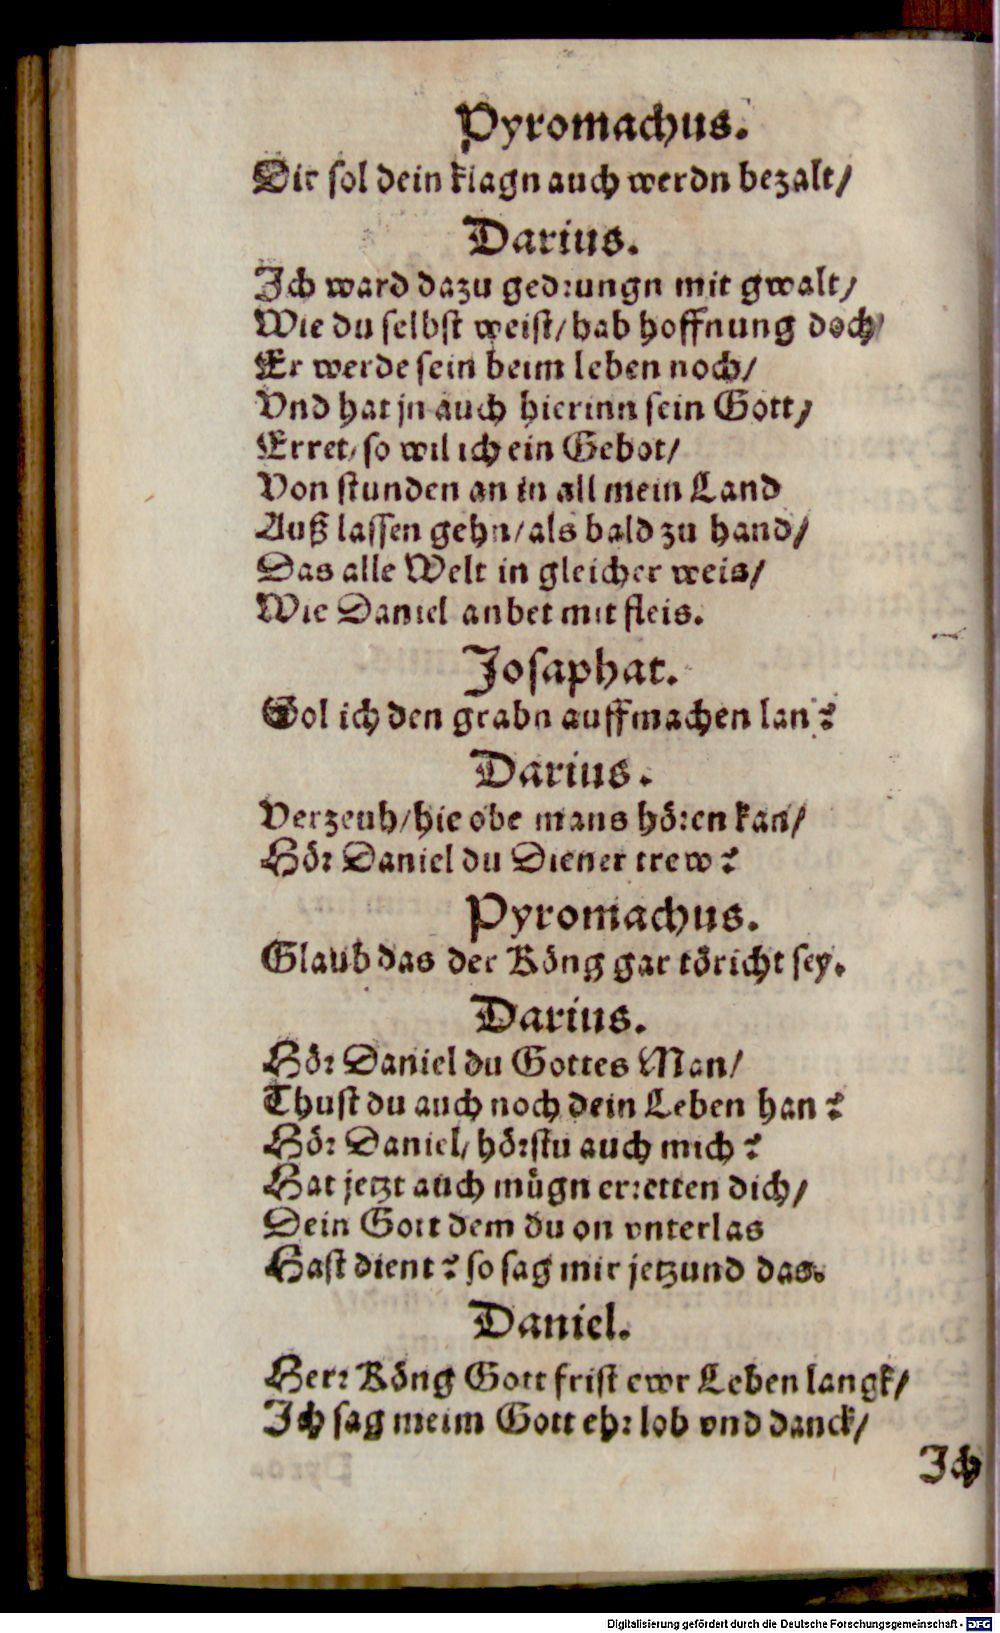 Pyromachus.
Dir sol dein klagn auch werdn bezalt/
Darius.
Ich ward dazu gedrungn mit gwalt/
Wie du selbst weist/hab hoffnung doch
Er werde sein beim leben noch/
Vnd hat jn auch hierinn sein Gott/
Erret/so wil ich ein Gebot/
Von stunden an in all mein Land
Auß lassen gehn/als bald zu hand/
Das alle Welt in gleicher weis/
Wie Daniel anbet mit fleis.
Josaphat.
Sol ich den grabn auffmachen lan?
Darius.
Verzeuh/hie obe mans hören kan/
Hör Daniel du Diener trew?
Pyromachus.
Glaub das der Köng gar töricht sey.
Darius.
Hör Daniel du Gottes Man/
Thust du auch noch dein Leben han?
Hör Daniel/hörstu auch mich?
Hat jetzt auch mügn erretten dich/
Dein Gott dem du on vnterlas
Hast dient? so sag mir jetzund das.
Daniel.
Herr Köng Gott frist ewr Leben langk/
Ich sag meim Gott ehr lob vnd danck/
Ich
Digitalisierung gefördert durch die Deutsche Forschungsgemeinschaft - DFG